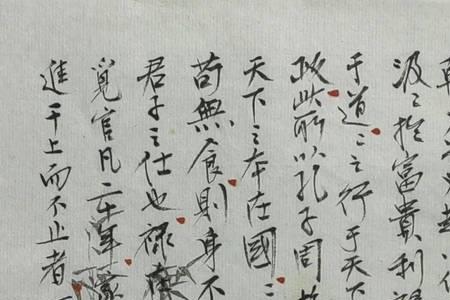 汲〻於富貴利
于道〻之行于天下
政此所以孔子周
天下之本在國〻
苟無食則身不
君子之仕也祿
覓官凡二十年
進于上而不止者